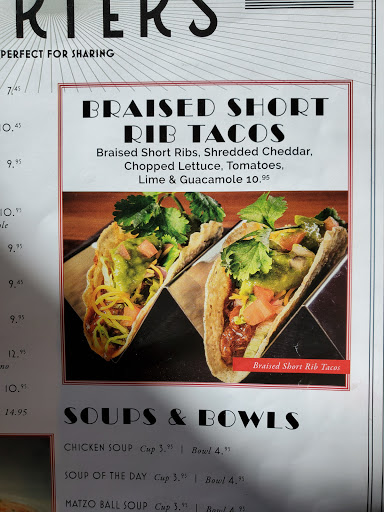 RTERS
PERFECT FOR SHARING
7.45
10.45
9.95
10.95
9.95
9.45
9.95
12.95
10.95
14.95
BRAISED SHORT
RIB TACOS
Braised Short Ribs, Shredded Cheddar,
Chopped Lettuce, Tomatoes,
Lime & Guacamole 10.95
Braised Short Rib Tacos
SOUPS & BOWLS
CHICKEN SOUP Cup 3.95 | Bowl 4.95
SOUP OF THE DAY Cup 3.95 | Bowl 4.95
MATZO BALL SOUP Cup 3.95 | Bowl 4.95